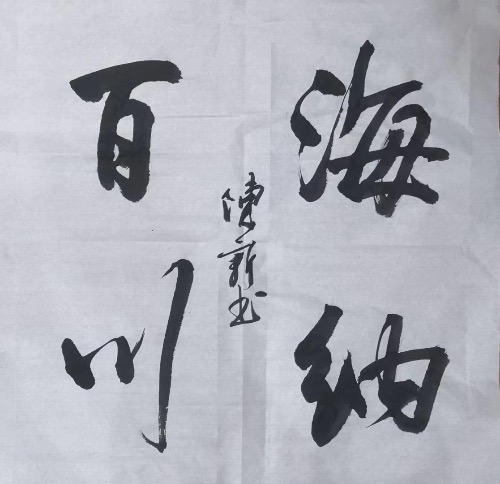 海纳
百川
陳新书